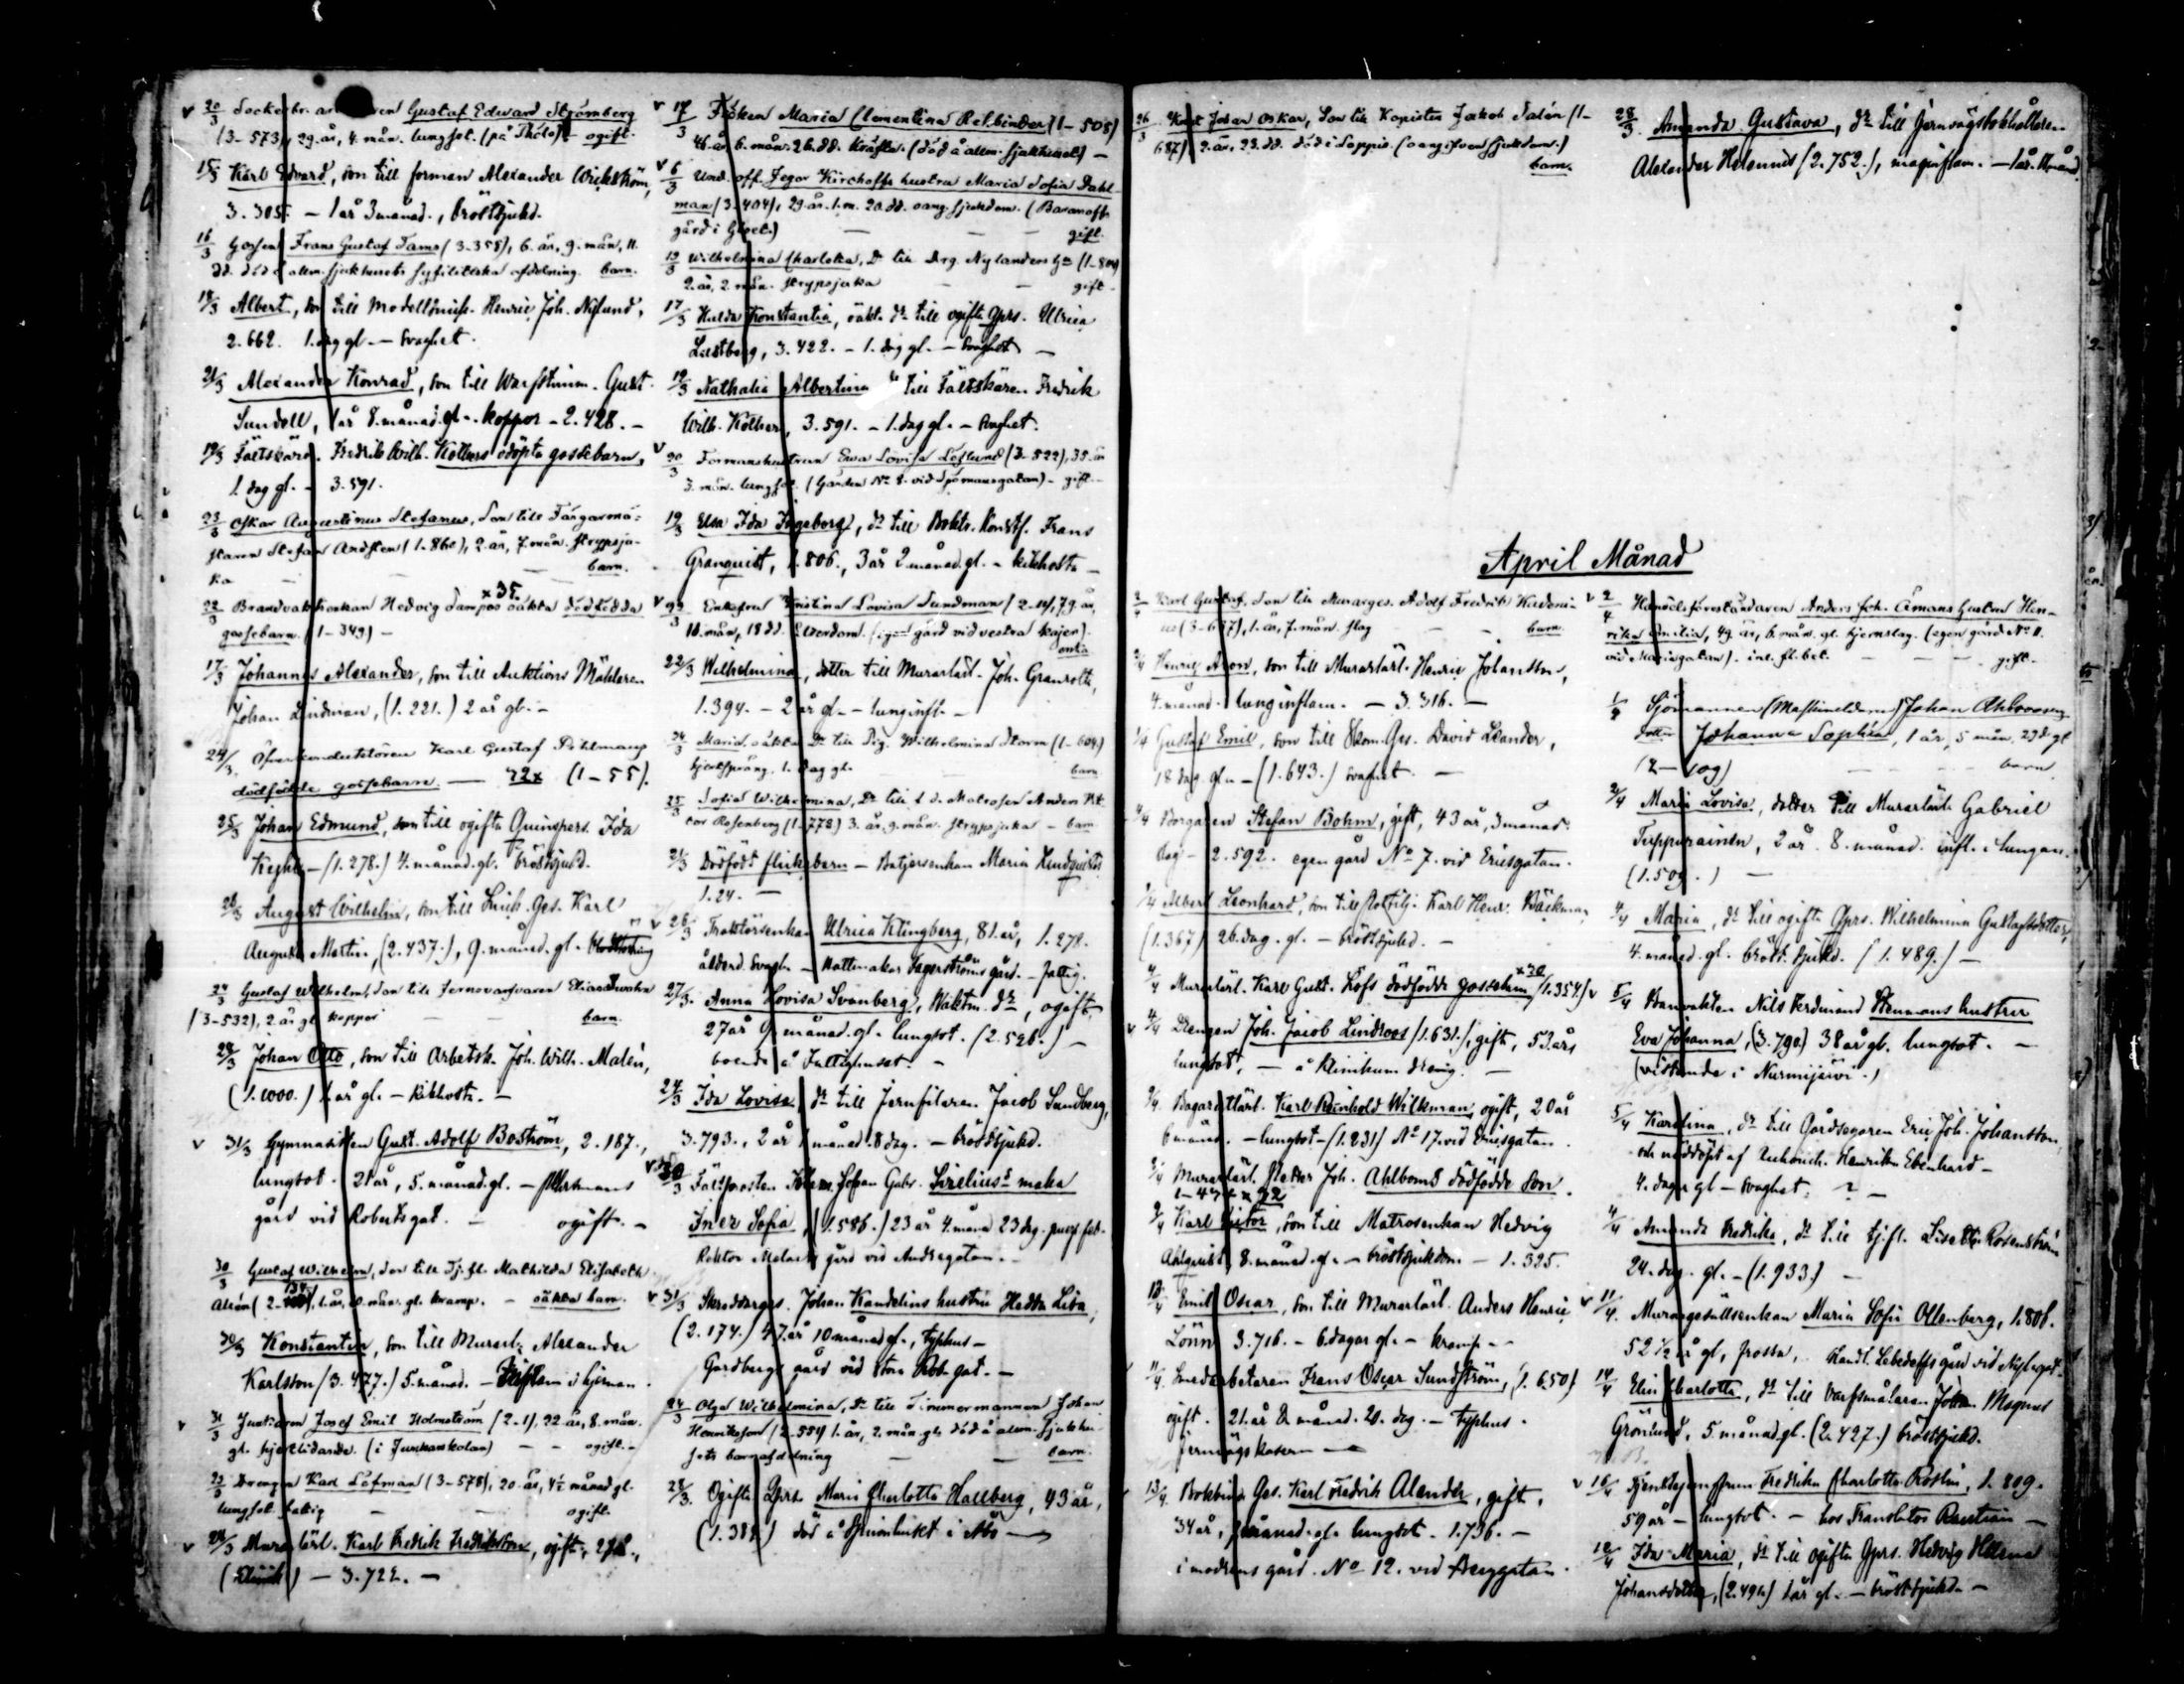 v 20/3 Sockerbr. Gustaf Edward Strömberg
(3-573), 29. år, 4. mån. lungsot. (på Thölö) - ogift.
15/3 Karl Edvard, son till forman Alexander Wickström,
3.305. - 1 år 3 månad., bröstsjukd.
16/3 Gossen Frans Gustaf Tams (3-358), 6. år, 9. mån, 11.
dd. död å allm. sjukhusets syfilitiska afdelning. barn.
18/3 Albert, son till Modellsnick. Henric Joh. Nylund,
2.662. 1. dag gl. - Svaghet.
21/3 Alexander Konrad, son till Warfstimm. Gust.
Sundell, 1 år 8. månad. gl. - koppor - 2.428. -
19/3 Fältskärs. Fredrik Wilh. Kolbers odöpta gossebarn,
1. dag gl. - 3.591.
23/3 Oskar Augustinus Stefanus, Son till Färgarmä-
staren Stefan Andsten (1.860), 2. år, 7. mån. strypsju-
ka - - barn.
x 35
22/3 Brandvaktsenkan Hedvig oäkta dödfödda
gossebarn. (1-349) -
17/3 Johannes Alexander, son till Auktions Mäklaren
Johan Lindman, (1.221.) 2 år gl. -
24/3. Karl Gustaf Pöhlmans
dödfödde gossebarn. — 72x (1-55).
25/3 Johan Edmund, son till ogifta Quinspers. Ida
- (1.278.) 4. månad. gl. bröstsjukd.
26/3 August Wilhelm, son till Snick. Ges. Karl
August Martin, (2.437.), 9. månad. gl.
24/3 Gustaf Wilhelm, Son till Jernsvarfvaren Elias
(3-532), 2. år gl. koppor - - barn.
28/3 Johan Otto, son till Arbetsk. Joh. Wilh. Malén,
(1.1000.) 1. år gl. - kikhosta. -
v 31/3 Gymnasisten Gust. Adolf Boström, 2.187.,
lungsot. 21 år, 5. månad. gl. -
gård vid Robertsgat. - ogift. -
30/3 Gustaf Wilhelm, Son till Tj. fl. Mathilda Elisabeth
Alrén (2-134), 1. år, mån. gl. kramp. - oäkta barn.
30/3 Konstantin, son till Murarl. Alexander
Karlsson (3.477.) 5. månad. - i hjernan.
v 31/3 Junkaren Josef Emil Holmström (2-1), 22 år, 8. mån.
gl. hjertlidande. (i Junkarskolan) - - ogift. -
23/3 Drengen Karl Löfman (3-578), 20. år, 4½ månad gl.
lungsot. fattig - - ogift.
v 28/3 Murarlärl. Karl Fredrik Fredriksson, ogift, 27 å.,
- 3.722. -
v 17/3 Fröken Maria Clementina Rehbinder (1-508)
46. år 6. mån. 26. dd. kräfta. (död å allm. sjukhuset) -
v 6/3 Und. off. Jegor Kirchoffs hustru Maria Sofia Dahl-
man (3-404), 29. år. 1. m. 20. dd. oang. sjukdom. (Baranoffs
gård i Gloet.) — — gift.
19/3 Wilhelmina Charlotta, Dr till Drg. Nylanders (1-804)
2. år, 2. mån. strypsjuka - - gift.
17/3 Hulda Konstantia, oäkt. dr till ogifta Qprs. Ulrica
Lustberg, 3.422. - 1. dag gl. - Svaghet -
19/3 Nathalia Albertina dr till Fältskären Fredrik
Wilh. Kolber, 3.591. - 1. dag gl. - Svaghet.
v 20/3 Formanshustrun Eva Lovisa Löflund (3-522), 35. år
3. mån. lungsot. (Gården No 8. vid Spömansgatan) - gift -
19/3 Elsa Ida Ingeborg, dr till Boktr. Konstf. Frans
Granquist, 1.806., 3 år 2. månad. gl. - kikhosta -
v 22/3 Enkefru Kristina Lovisa Sundman (2-14), 79. år,
10. mån, 18 dd. ålderdom. (egen gård vid vestra kajen).
enka
22/3 Wilhelmina, dotter till Murarlärl. Joh. Granroth,
1.394. - 2 år gl. - lunginfl. -
24/3 Maria oäkta Dr till Pig. Wilhelmina Storm (1-604.)
hjertsprång. 1. dag gl. - barn
25/3 Sofia Wilhelmina, Dr till f. d. Matrosen Anders Vik-
tor Rosenberg (1-778) 3. år, 9. mån. strypsjuka - barn.
21/3 Dödfödt flickebarn - Maria Lindquists
1.24. -
v 26/3 Traktörsenkan Ulrica Klingberg, 81. år, 1.278.
ålderd. Svagh. - Hattmakar Fagerströms gård. - fattig.
27/3. Anna Lovisa Svanberg, Waktm. dr, ogift,
27 år 9. månad. gl. lungsot. (2.526.) -
boende å Fattighuset. -
24/3 Ida Lovisa, dr till Jernfilaren Jacob Sundberg,
3.793., 2 år 1 månad. 8 dag. - bröstsjukd.
v 30/3 Fältprosten Johan Gabr. Sirelius's maka
Inez Sofia, (1.586.) 23 år 4. mån 23 dag. puerp. feb.
Rektor gård vid Andregatan. -
v 31/3 Skreddarges. Johan Kandelins hustru Hedda Lisa,
(2.174.) 47. år 10 månad gl., typhus -
Gardbergs gård vid stora Rob. gat. -
24/3 Olga Wilhelmina, Dr till Timmermannen Johan
Henriksson (2-551) 1. år, 2. mån. gl. död å allm. sjukhu-
sets barnafdelning — — barn.
28/3. Ogifta Qprs. Maria Charlotta Hallberg, 43 år,
(1.389.) död å Spinnhuset i Åbo —
26/3 Knut Johan Oskar, Son till Kopisten Jakob Dalén (1-
687) 2. år, 23. dd. död i Sappio. (oangifven sjukdom.)
barn.
28/3. Amanda Gustava, dr till Jernvägsbokhållaren
Alexander Helenius (2.752.), maginflam. - 1 år. 11. månd.
April Månad
2/4 Karl Gustaf, Son till Murarges. Adolf Fredrik
(3-677), 1. år, 7. mån. slag - - barn.
2/4 Henric Aron, son till Murarlärl. Henric Johansson,
4. månad. lunginflam. - 3.316. -
1/4 Gustaf Emil, son till Skom. Ges. David Leander,
18 dag. gl. - (1.643.) svaghet. -
4/4 Borgaren Stefan Bohm, gift, 43 år, 3 månad.
dag - 2.592. egen gård No 7. vid Eriksgatan.
1/4 Albert Leonhard, son till Karl Henr. Bäckman,
(1.367) 26. dag. gl. - bröstsjukd. -
4/4 Murarlärl. Karl Gust. Löfs dödfödde gossebarn (1.354.)
v 4/4 Drengen Joh. Jacob Lindroos (1.631.), gift, 53. år,
lungsot, - å Klinikum -
9/4 Bagarelärl. Karl Reinhold Wilkman, ogift, 20 år
6 månad. - lungsot - (1.231) No 17. vid Eriksgatan.
Murarlärl. Joh. Ahlboms dödfödde son.
9/4 Karl Victor, son till Matrosenkan Hedvig
Ahlquist, 8. månad. gl. - bröstsjukdom - 1.325.
12/4 Emil Oscar, son till Murarlärl. Anders Henric
Lönn 3.716. - 6. dagar gl. - kramp. -
11/4. Smedarbetaren Frans Oscar Sundström, (1.650.)
ogift. 21. år 2. månad. 20. dag. - typhus.
Jernvägskasern -
13/4. Bokbind. Ges. Karl Fredrik Alander, gift,
34 år, månad. gl. lungsot. 1.736. -
i modrens gård. No 12. vid Berggatan.
v 2/4 Anders Joh. Åmans hustru Hen-
rika Emilia, 49. år, 6. mån. gl. hjernslag. (egen gård No 11.
vid Mariegatan). - - gift.
1/4 Sjömannen (Maskineldaren) Johan Ahlroos
dotter Johanna Sophia, 1 år, 5 mån, 29 d. gl
(2-109) - - barn.
2/4 Maria Lovisa, dotter till Murarlärl. Gabriel
Tuppurainen, 2 år 8. månad. infl. i lungan.
(1.509.) -
4/4 Maria, dr till ogifta Qprs. Wilhelmina Gustafsdotter,
4. månad. gl. bröst. sjukd. (1.489.) -
v 5/4 Banvakten Nils Ferdinand Stenmans hustru
Eva Johanna, (3.790.) 38 år gl. lungsot. -
(vistande i Nurmijärvi.)
5/4 Karolina, dr till Gårdsegaren Eric Joh. Johansson,
och nöddöpt af Henrika Ebenhard -
4. dagar gl - Svaghet. -
4/4 Amanda Fredrika, dr till tj. fl. Lisette Rosenström
24. dag. gl. - (1.933.) -
v 11/4. Maria Sofia Ollenberg, 1.808.
52 ½ år gl, frossa, Handl. Lebedeffs gård vid Nylgat.
14/4 Elin Charlotta, dr till Varfsmålaren Johan Magnus
Grönlund, 5. månad. gl. (2.427.) bröstsjukd.
v 16/4 Fredrika Charlotta Roslin, 1.809.
59 år - lungsot. - hos Translator -
12/4 Ida Maria, dr till ogifta Qprs. Hedvig Helena
Johansdotter, (2.494.) 1 år gl. - bröstsjukd. -